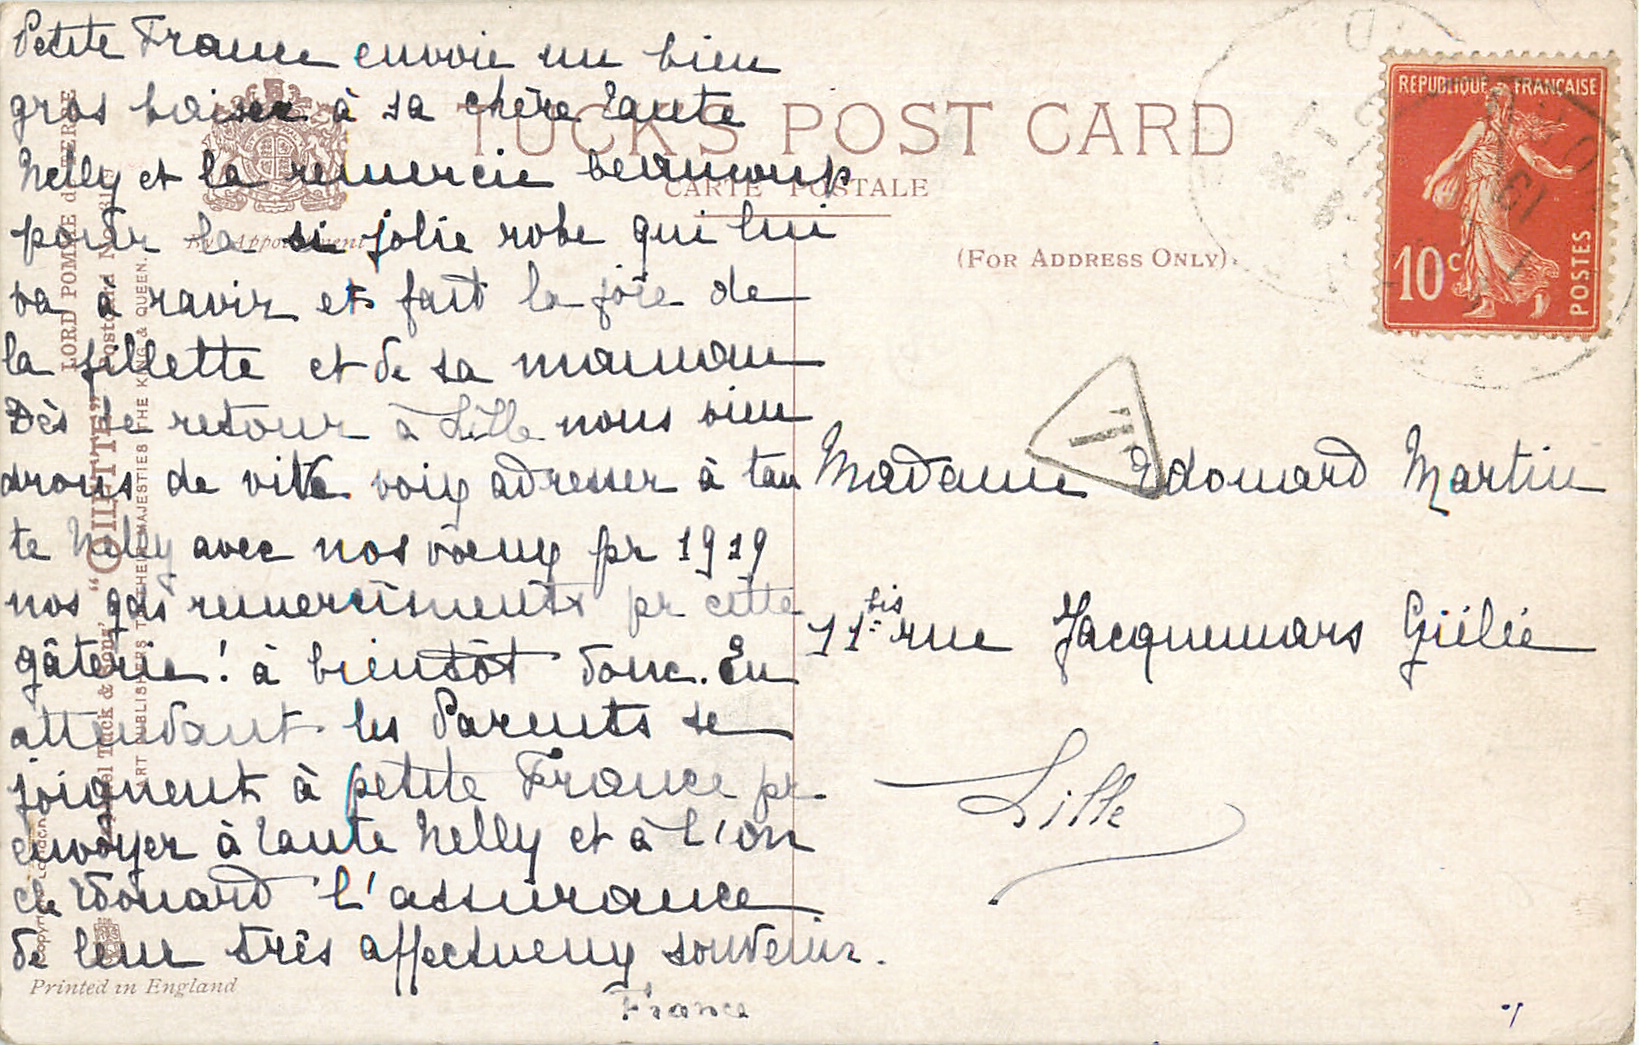 Petite France envoie un bien
gros baiser à sa chère tante
Nelly et la remercie beaucoup
pour la si jolie robe qui lui
va à ravir et fait la joie de
la fillette et de sa maman
Dès le retour à Lille nous vien
drons de vive voix adresser à tan
te Nelly avec nos vœux pr 1919
nos remerciments pr cette
gâterie! à bientôt donc. En
attendant les Parents se
joignent à petite France pr
envoyer à tante Nelly et à l'on
cle Edouard l'assurance
de leur très affectueux souvenir.
France
TUCK'S POST CARD
CARTE POSTALE
(FOR ADDRESS ONLY)
REPUBLIQUE FRANÇAISE
10c
POSTES
T
Madame Edouard Martin
11bis rue Jacquemars Giélée
Lille
By Appointment
LORD POMME de TERRE
"OILETTE" Postcard No.
Raphael Tuck & Sons'
ART PUBLISHERS TO THEIR MAJESTIES THE KING & QUEEN.
Printed in England